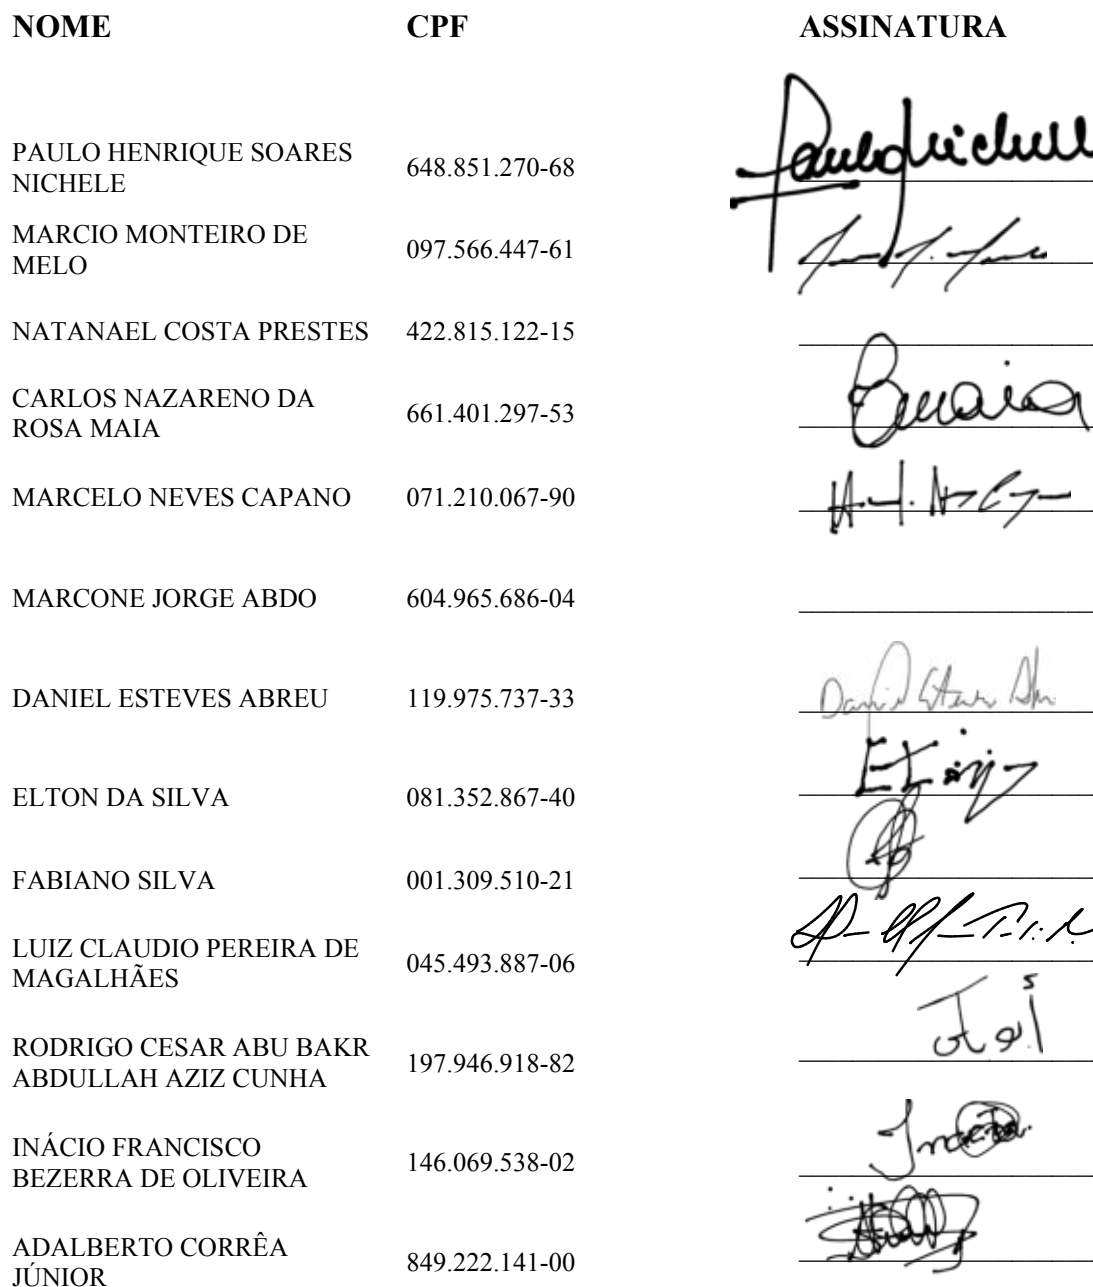 NOME CPF ASSINATURA
PAULO HENRIQUE SOARES
NICHELE
648.851.270-68
Paulo Nichele
MARCIO MONTEIRO DE
MELO
097.566.447-61
NATANAEL COSTA PRESTES 422.815.122-15
CARLOS NAZARENO DA
ROSA MAIA
661.401.297-53
MARCELO NEVES CAPANO 071.210.067-90
MARCONE JORGE ABDO 604.965.686-04
DANIEL ESTEVES ABREU 119.975.737-33
Daniel Esteves
ELTON DA SILVA 081.352.867-40
FABIANO SILVA 001.309.510-21
LUIZ CLAUDIO PEREIRA DE
MAGALHÃES
045.493.887-06
RODRIGO CESAR ABU BAKR
ABDULLAH AZIZ CUNHA
197.946.918-82
INÁCIO FRANCISCO
BEZERRA DE OLIVEIRA
146.069.538-02
ADALBERTO CORRÊA
JÚNIOR
849.222.141-00